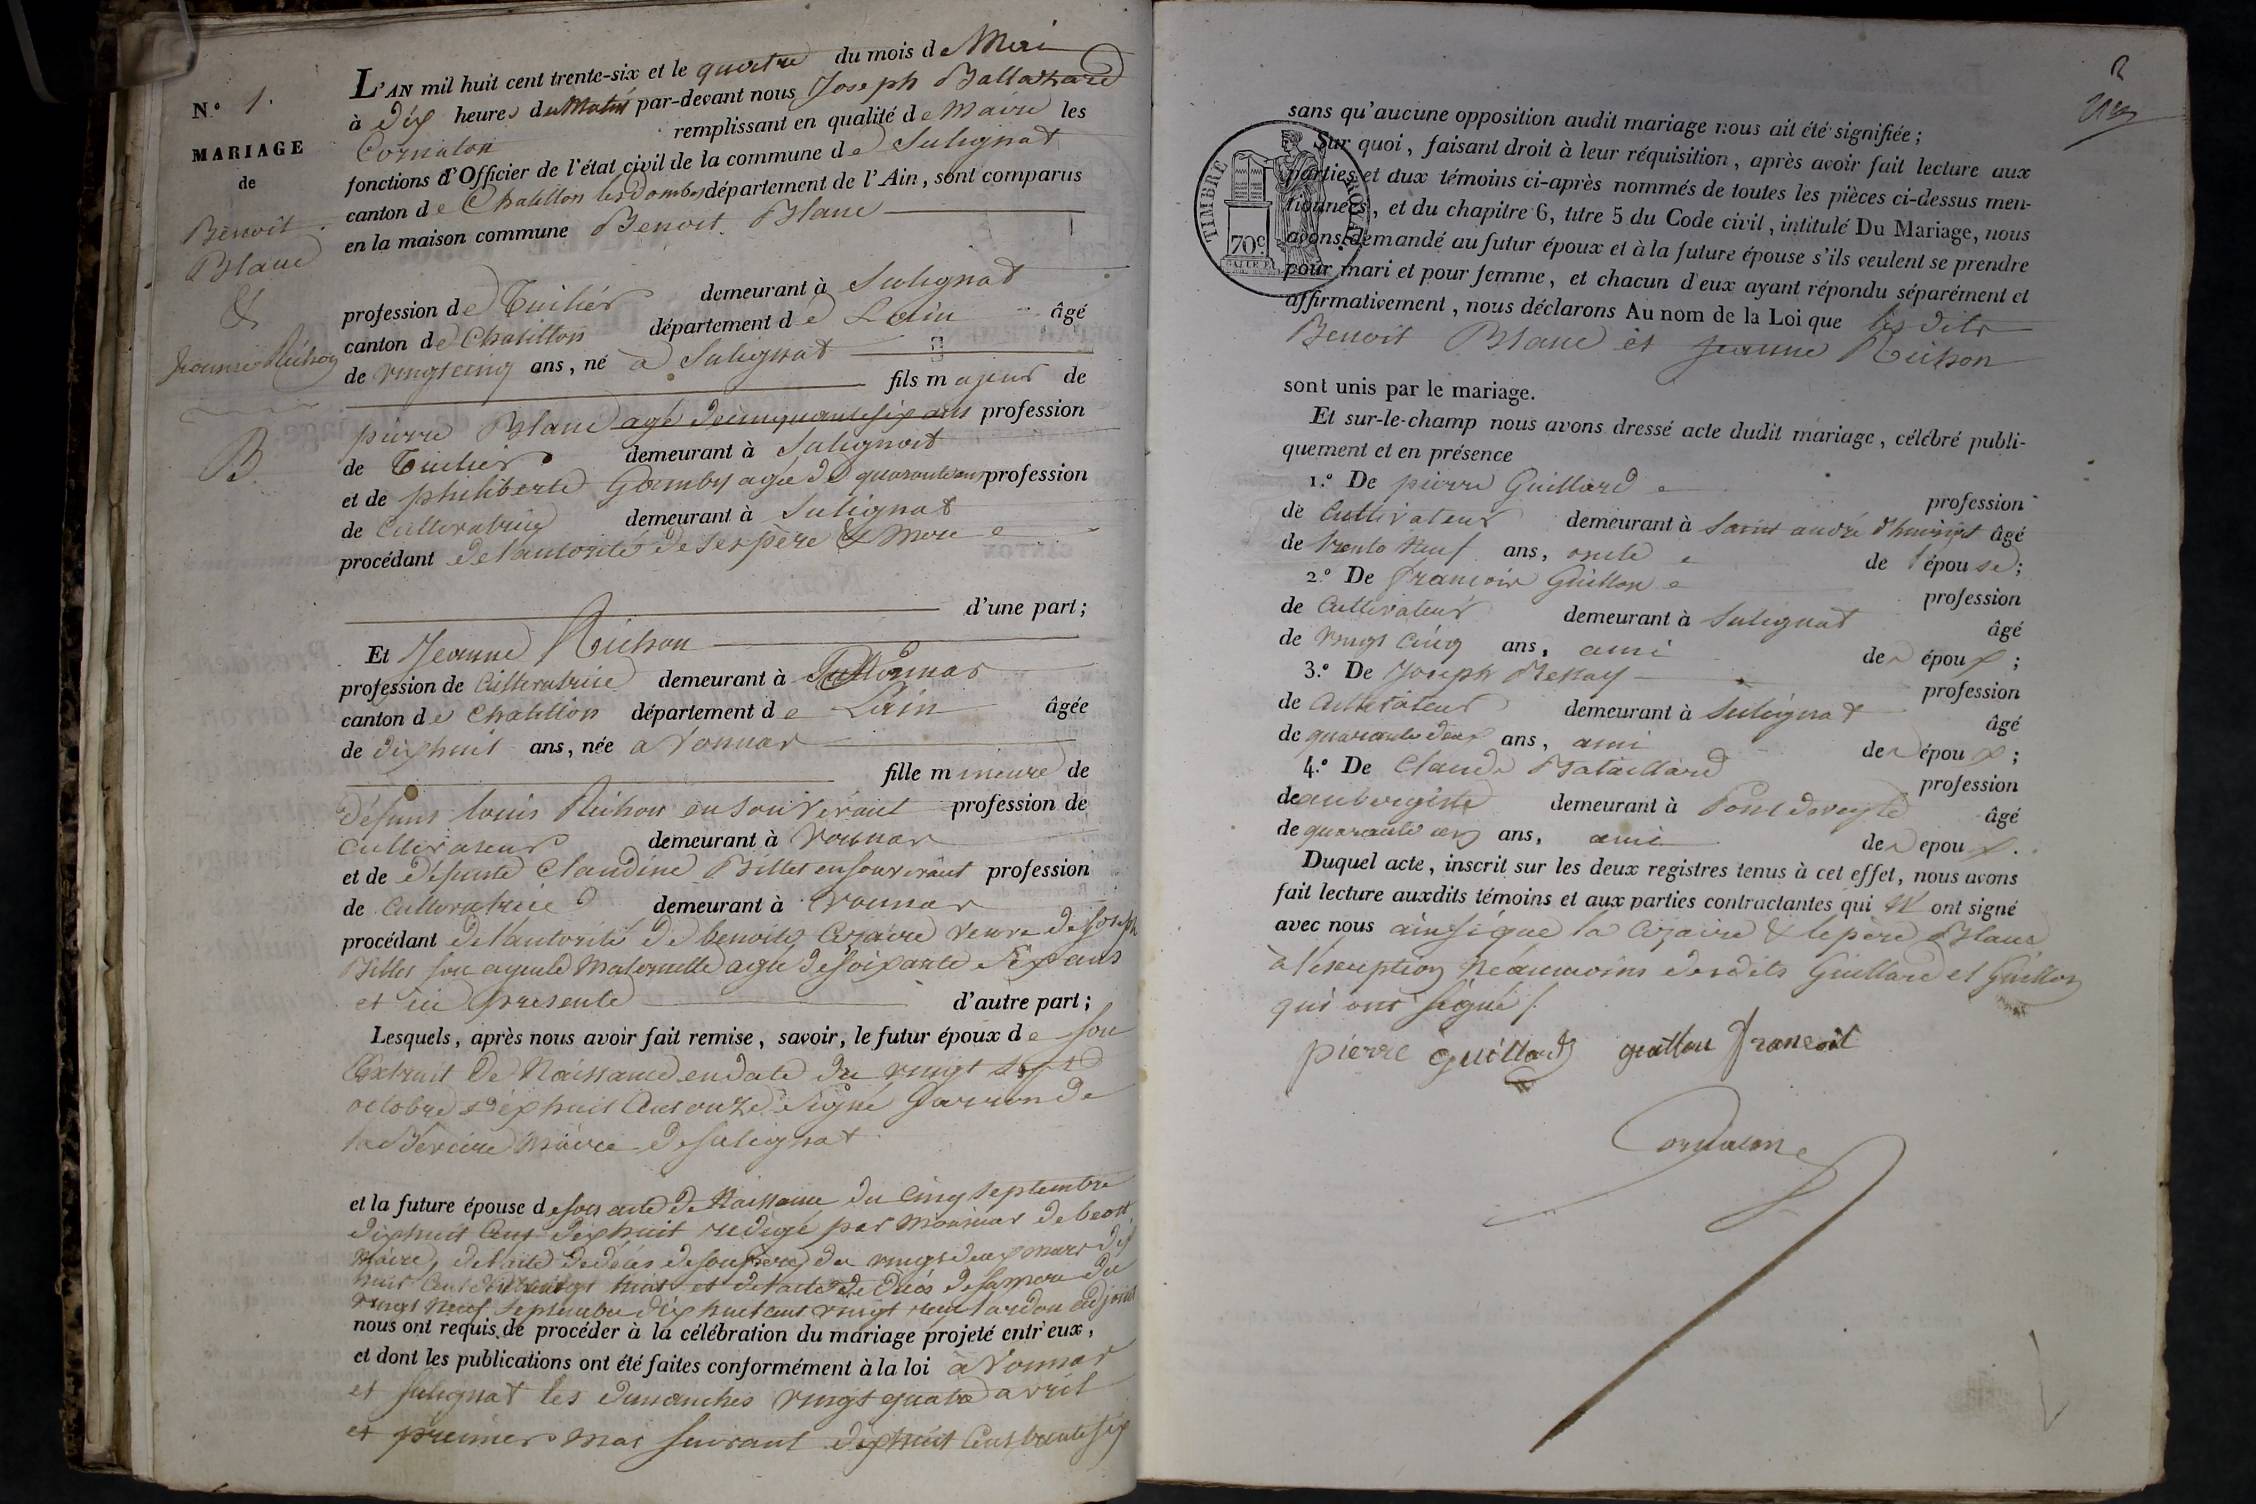 N.º 1.
MARIAGE
de
Benoit
Blanc
&
Jeanne Richon
B.
L'AN mil huit cent trente-six et le quatre du mois de Mai
à dix heures du Matin par-devant nous Joseph
Cornaton remplissant en qualité de Maire les
fonctions d'Officier de l'état civil de la commune de Sulignat
canton de Chatillon les Dombes département de l'Ain, sont comparus
en la maison commune Benoit Blanc
profession de Tuilier demeurant à Sulignat
canton de Chatillon département de Lain âgé
de vingt cinq ans, né à Sulignat
fils majeur de
pierre Blanc agé de cinquante six ans profession
de Tuilier demeurant à Sulignat
et de philiberte Gamby agée de quarante ans profession
de Cultivatrice demeurant à Sulignat
procédant de l'autorité de ses père & mere
d'une part;
Et Jeanne Richon
profession de Cultivatrice demeurant à Vonnas
canton de Chatillon département de Lain âgée
de dix huit ans, née a Vonnas
fille mineure de
défunt louis Richon en son vivant profession de
Cultivateur demeurant à Vonnas
et de défunte Claudine Billet en son vivant profession
de Cultivatrice demeurant à Vonnas
procédant de l'autorité de benoite Cezaire veuve de Joseph
Billet son ayeule Maternelle agée de soixante dix ans
et ici presente d'autre part;
Lesquels, après nous avoir fait remise, savoir, le futur époux de son
Extrait de Naissance en date du vingt sept
octobre dix huit Cent onze signé
Maire de Sulignat
et la future épouse de son acte de Naissance du cinq septembre
dix huit Cent dix huit redigé par Monsieur
Maire, de l'acte de décès de son père du vingt deux mars dix
huit Cent vingt huit et de l'acte de décès de sa mere du
vingt neuf septembre dix huit cent vingt adjoint
nous ont requis de procéder à la célébration du mariage projeté entr'eux,
et dont les publications ont été faites conformément à la loi à Vonnas
et Sulignat les dimanches vingt quatre avril
et premier mai suivant dix huit Cent trente six
2
TIMBRE ROYAL
70c
sans qu'aucune opposition audit mariage nous ait été signifiée;
Sur quoi, faisant droit à leur réquisition, après avoir fait lecture aux
parties et aux témoins ci-après nommés de toutes les pièces ci-dessus men-
tionnées, et du chapitre 6, titre 5 du Code civil, intitulé Du Mariage, nous
avons demandé au futur époux et à la future épouse s'ils veulent se prendre
pour mari et pour femme, et chacun d'eux ayant répondu séparément et
affirmativement, nous déclarons Au nom de la Loi que les dits
Benoit Blanc et Jeanne Richon
sont unis par le mariage.
Et sur-le-champ nous avons dressé acte dudit mariage, célébré publi-
quement et en présence
1.º De pierre Guillard profession
de Cultivateur demeurant à Saint andré d'huiriat âgé
de trente Neuf ans, oncle de l'épouse;
2.º De francois Guillon profession
de Cultivateur demeurant à Sulignat âgé
de vingt cinq ans, ami des époux;
3.º De Joseph profession
de Cultivateur demeurant à Sulignat âgé
de quarante deux ans, ami des époux;
4.º De Claude Bataillard profession
de aubergiste demeurant à Pont de veyle âgé
de quarante ans, ami des epoux.
Duquel acte, inscrit sur les deux registres tenus à cet effet, nous avons
fait lecture auxdits témoins et aux parties contractantes qui N' ont signé
avec nous ainsi que la Cezaire & le père Blanc
à l'exception Néanmoins desdits Guillard et Guillon
qui ont signé /.
pierre guillard guillon francois
Cornaton